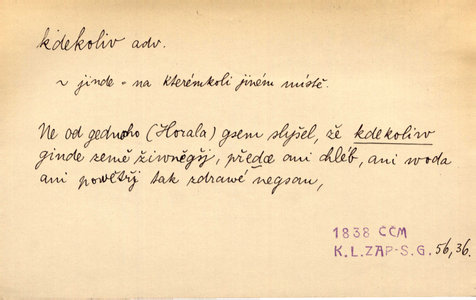 kdekoliv adv.
~ jinde = na kterémkoli jiném místě.
Ne od gednoho (Horala) gsem slyšel, že kdekoliw
ginde země žiwněgšj, předce ani chléb, ani woda
ani powětřj tak zdrawé negsau,
1838 ČČM
K.L.ZAP-S.G. 56,36.